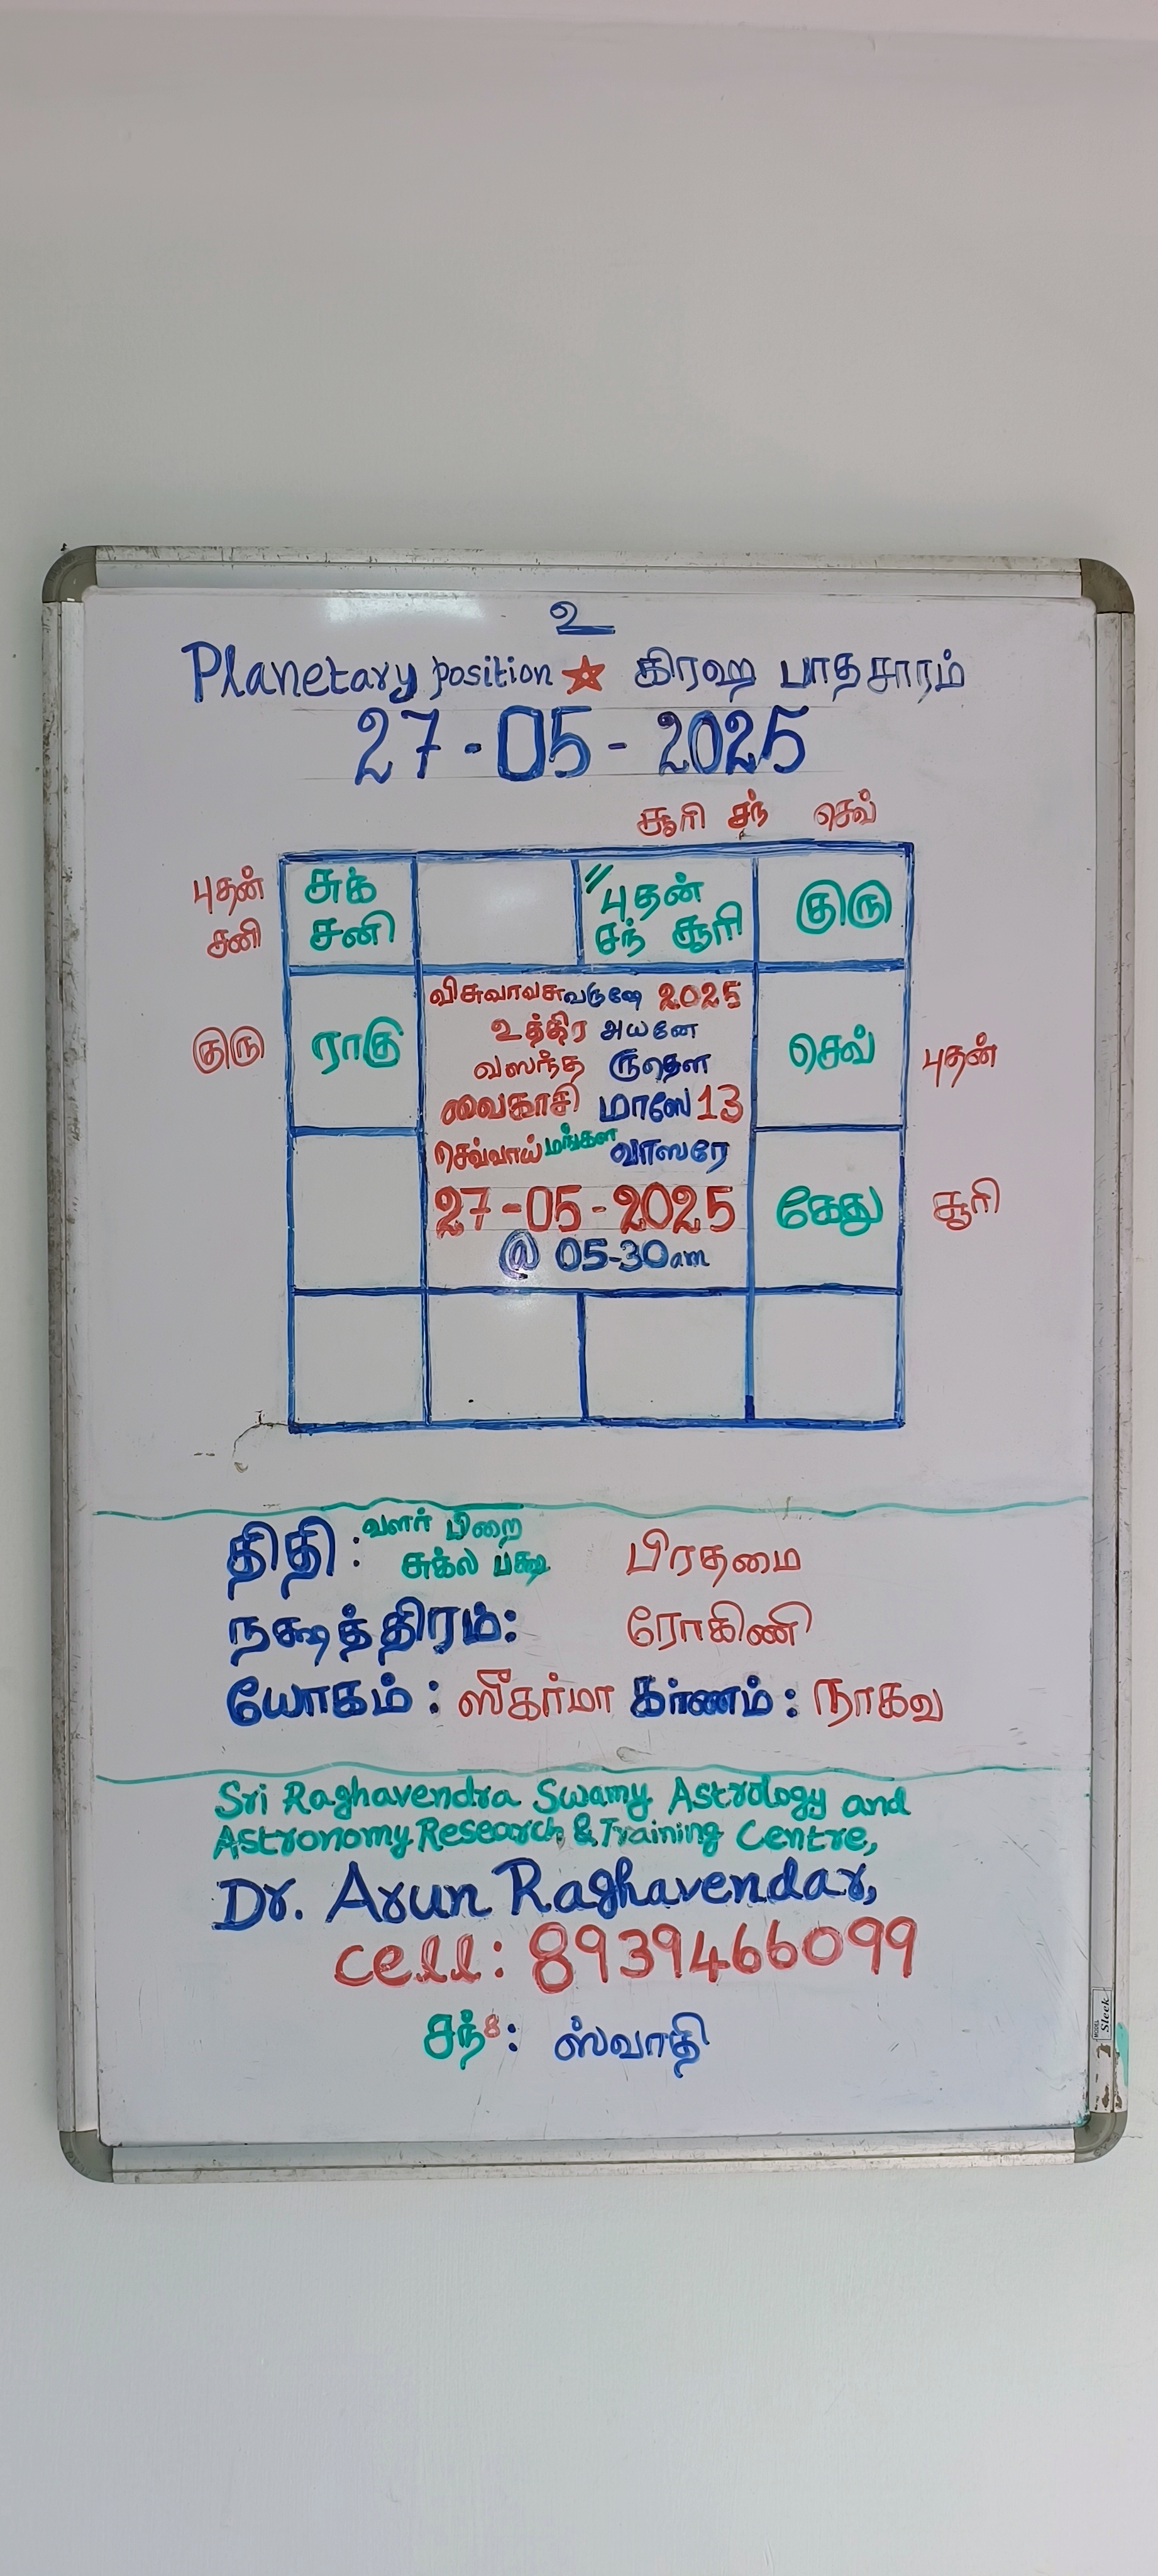 உ
Planetary position ☆ கிரஹ பாதசாரம்
27-05-2025
சூரி சந் செவ்
புதன்
சனி
சுக்
சனி
// புதன்
சந் சூரி
குரு
குரு
ராகு
விசுவாவசுவருஷே 2025
உத்திர அயனே
வஸந்த ருதௌ
வைகாசி மாஸே 13
செவ்வாய் மங்கள வாஸரே
27-05-2025
@ 05-30am
செவ்
புதன்
கேது
சூரி
திதி : வளர் பிறை
சுக்ல பக்ஷ பிரதமை
நக்ஷத்திரம்: ரோகிணி
யோகம் : ஸீகர்மா கர்ணம் : நாகவ
Sri Raghavendra Swamy Astrology and
Astronomy Research & Training Centre,
Dr. Arun Raghavendar,
cell: 8939466099
சந்8: ஸ்வாதி
MODEL Sleek